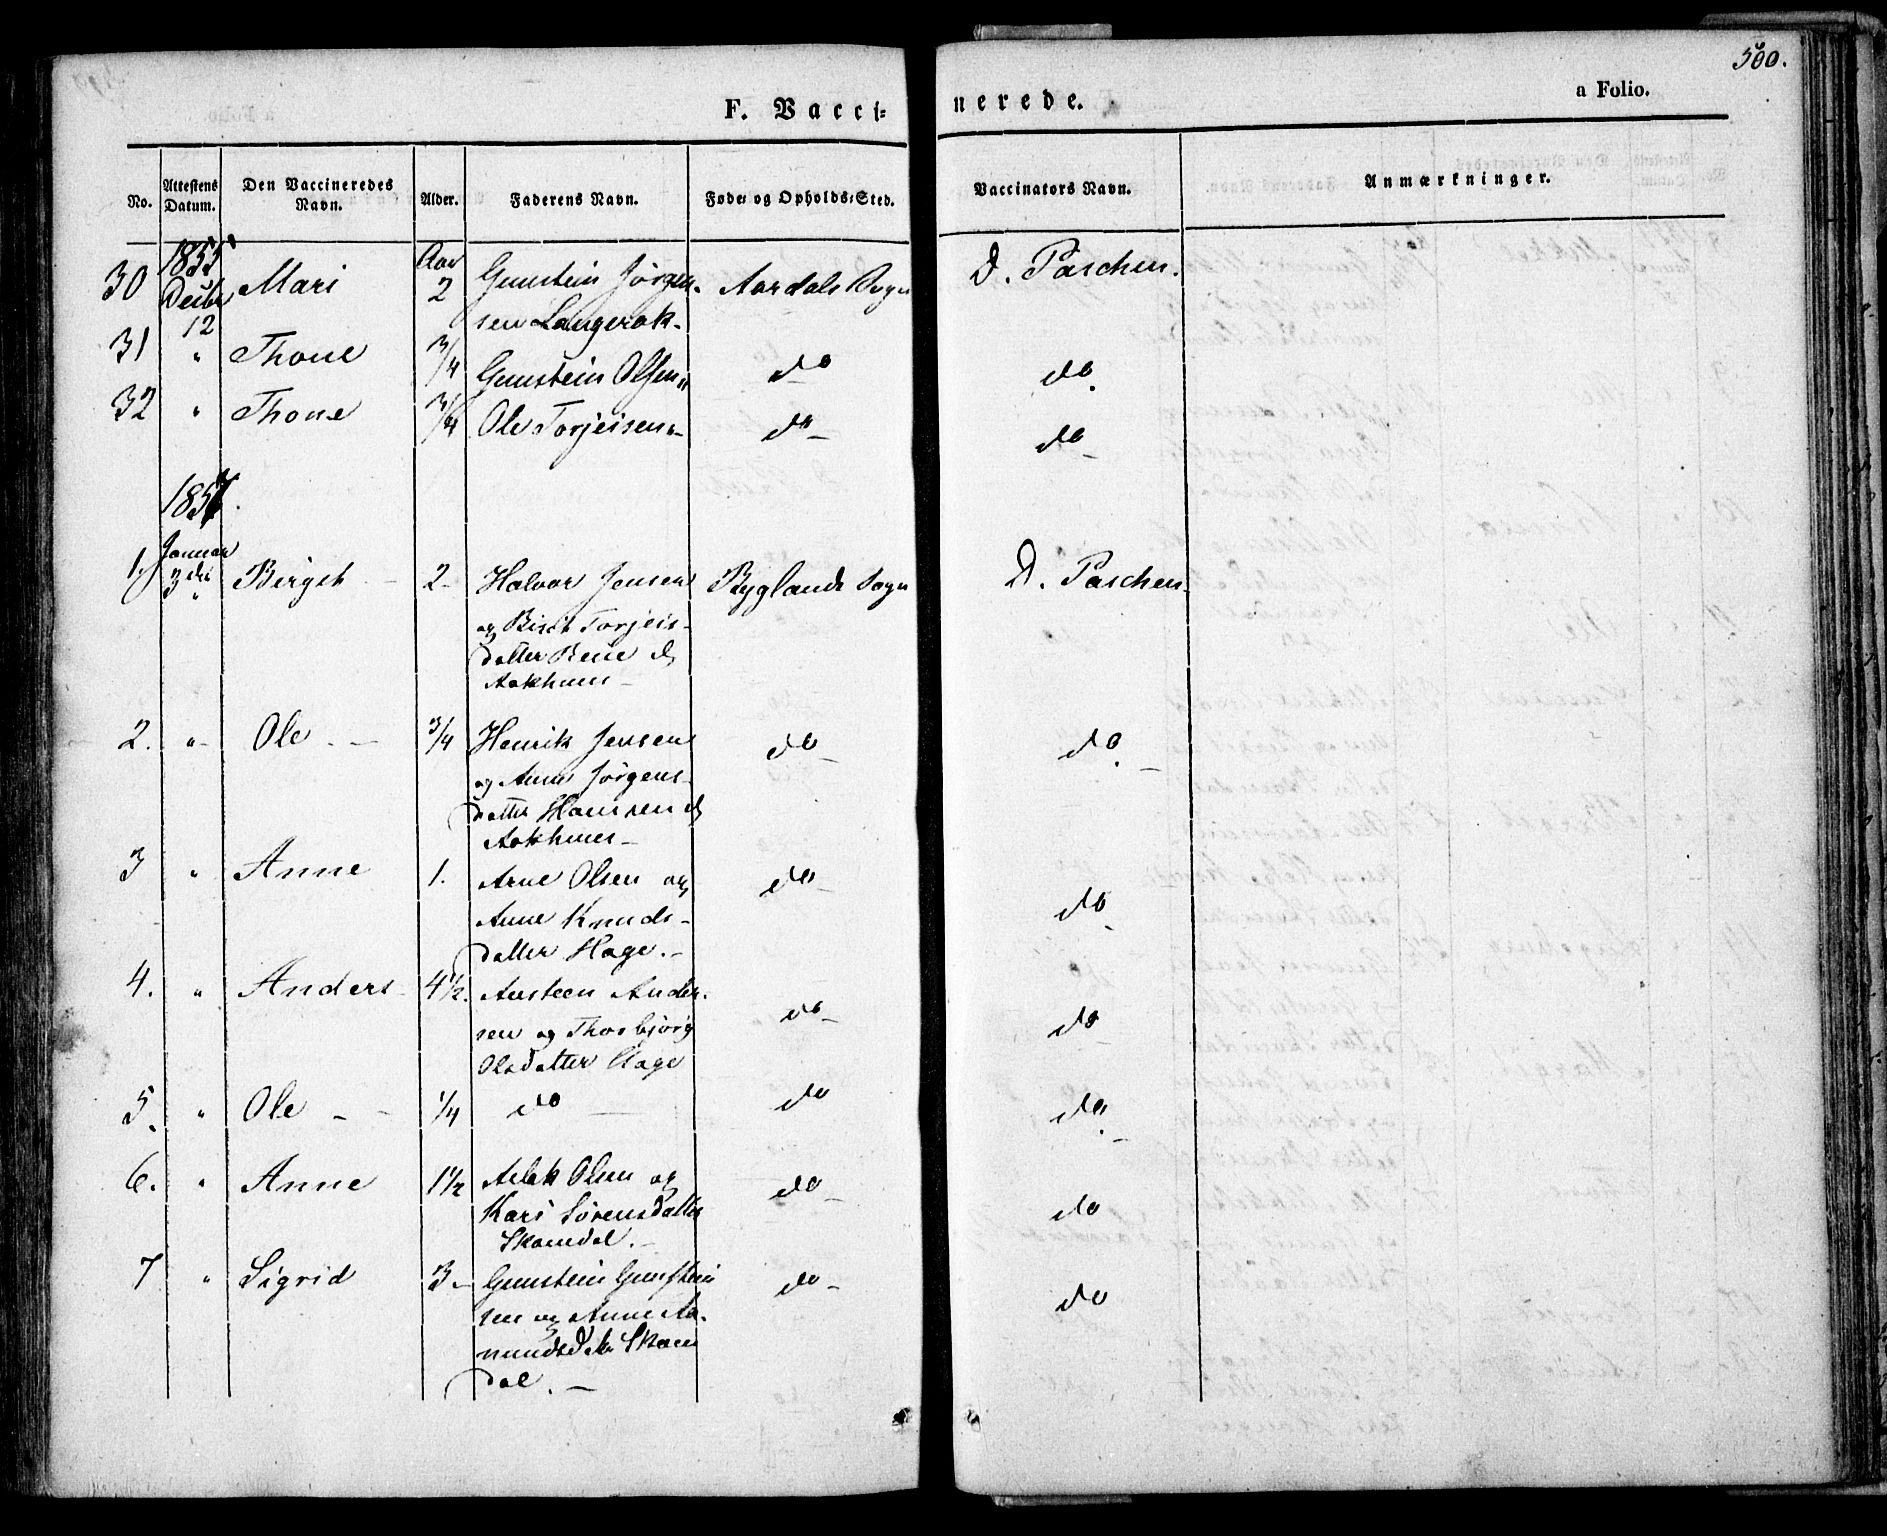 500.
F. Vacci=nerede.
a Folio.
No. Attestens Datum. Den Vaccineredes Navn. Alder. Faderens Navn. Føde- og Opholds-Sted. Vaccinators Navn. Anmærkninger.
1855 Aar
30 Decbr 12 Mari 2 Gunstein Jørgen- Aardals Sogn D. Paschen.
sen Langerak.
31 " Thone 3/4 Gunstein Olsen do do
32 " Thone 3/4 Ole Torjeisen do do
1857.
1. Januar 3die Birgit 2 Halvor Jensen Byglands Sogn D. Paschen
og Birit Torjeis-
datter
Aakhuus
2. " Ole 3/4 Henrik Jensen do do
og Anne Jørgens-
datter
Aakhuus
3 " Anne 1. Arne Olsen og do do
Anne Knuds-
datter Hage.
4. " Anders 4 1/2 Austeen Ander- do do
sen og Thorbjørg
Olsdatter Hage
5. " Ole 1/4 do do do
6. " Anne 1 1/2 Aslak Olsen og do do
Kari Sørensdatter
Skomdal.
7 " Sigrid 3 Gunstein Gunstein do do
sen og Anne Aa-
mundsdtr Skom
dal.